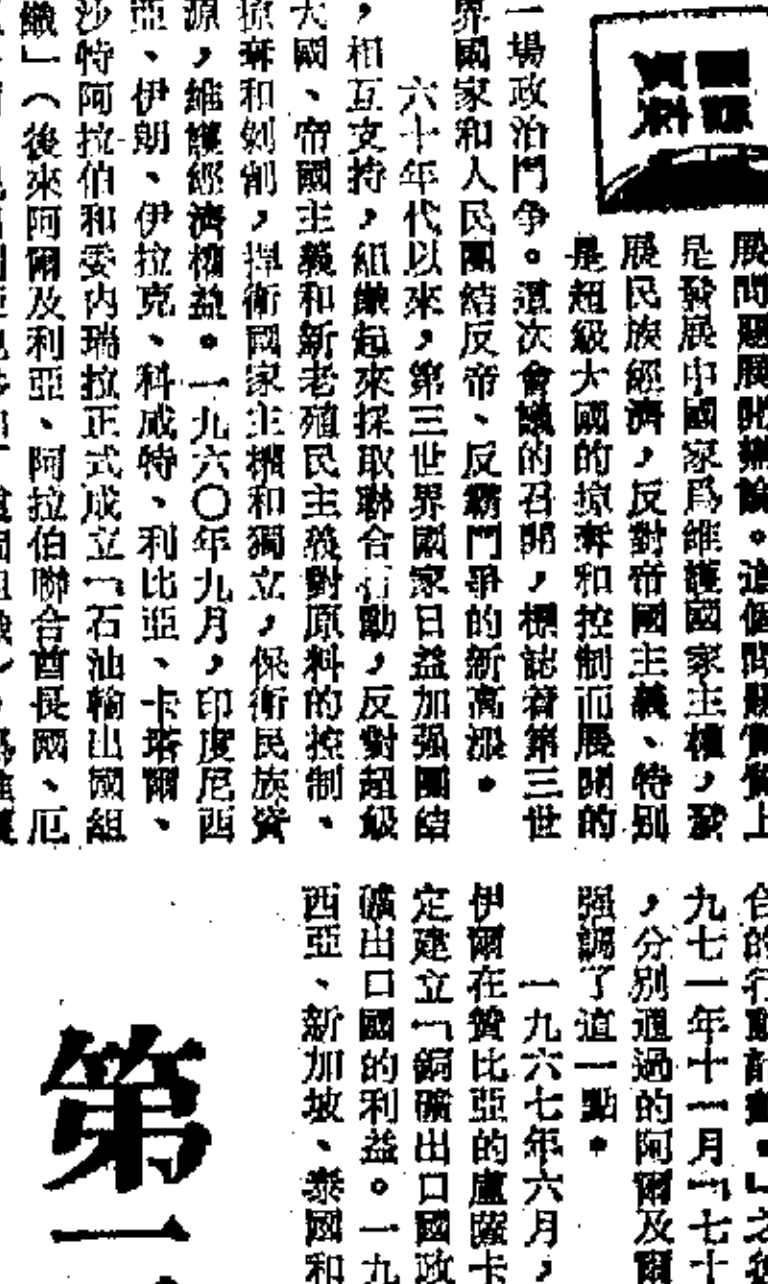 國際
資料
展問題展開辯論。這個問題實質上
是發展中國家爲維護國家主權，發
展民族經濟，反對帝國主義、特別
是超級大國的掠奪和控制而展開的
一場政治鬥争。這次會議的召開，標誌着第三世
界國家和人民團結反帝、反霸鬥爭的新高漲。
六十年代以來，第三世界國家日益加强團結
，相互支持，組織起來採取聯合行動，反對超級
大國、帝國主義和新老殖民主義對原料的控制、
掠奪和剝削，捍衛國家主權和獨立，保衛民族資
源，維護經濟權益。一九六〇年九月，印度尼西
亞、伊朗、伊拉克、科威特、利比亞、卡塔爾、
沙特阿拉伯和委内瑞拉正式成立「石油輸出國組
織」（後來阿爾及利亞、阿拉伯聯合酋長國、厄
合的行動計劃。」之後
九七一年十一月「七十
，分別通過的阿爾及爾
强調了這一點。
一九六七年六月，
伊爾在贊比亞的盧薩卡
定建立「銅礦出口國政
礦出口國的利益。一九
西亞、新加坡、泰國和
第